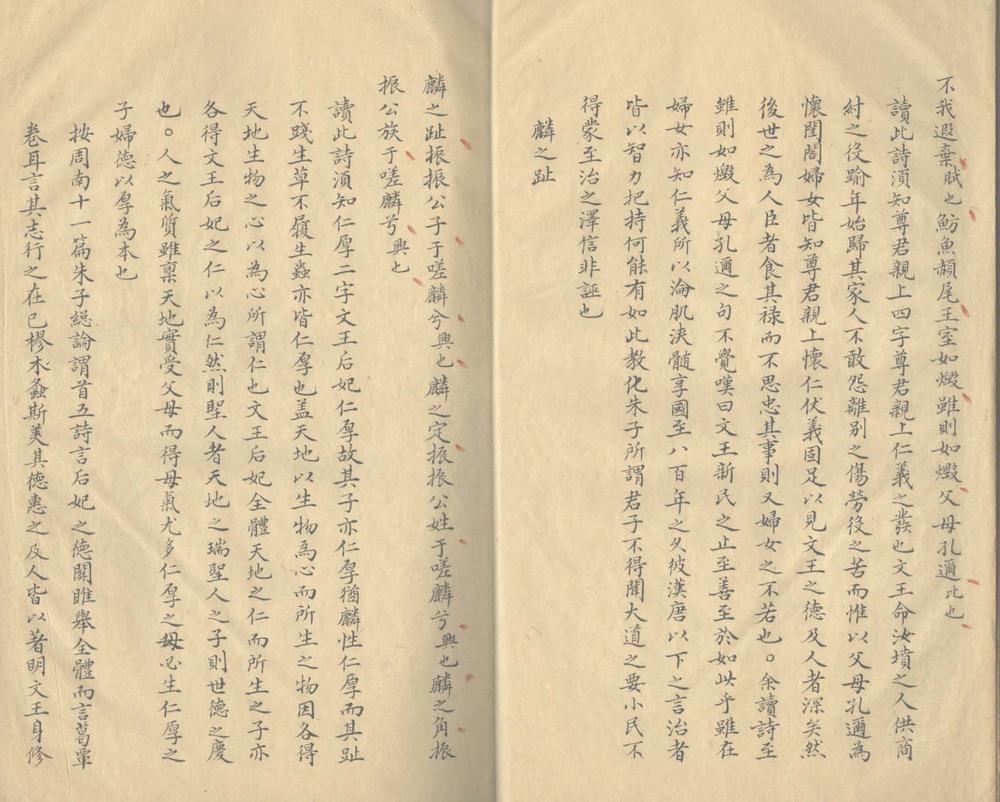 不我遐棄賦也魴魚赬尾王室如燬雖則如燬父母孔邇比也
讀此詩須知尊君親上四字尊君親上仁義之發也文王命汝墳之人供商
紂之役踰年始歸其家人不敢怨離別之傷勞役之苦而惟以父母孔邇為
懷閨閤婦女皆知尊君親上懷仁伏義固足以見文王之德及人者深矣然
後世之為人臣者食其祿而不思忠其事則又婦女之不若也。余讀詩至
雖則如燬父母孔邇之句不覺嘆曰文王新民之止至善至於如此乎雖在
婦女亦知仁義所以淪肌浹髓享國至八百年之久彼漢唐以下之言治者
皆以智力把持何能有如此教化朱子所謂君子不得聞大道之要小民不
得蒙至治之澤信非誣也
麟之趾
麟之趾振振公子于嗟麟兮興也麟之定振振公姓于嗟麟兮興也麟之角振
振公族于嗟麟兮興也
讀此詩須知仁厚二字文王后妃仁厚故其子亦仁厚猶麟性仁厚而其趾
不踐生草不履生蟲亦皆仁厚也盖天地以生物為心而所生之物因各得
天地生物之心以為心所謂仁也文王后妃全體天地之仁而所生之子亦
各得文王后妃之仁以為仁然則聖人者天地之瑞聖人之子則世德之慶
也。人之氣質雖禀天地實受父母而得母氣尤多仁厚之母必生仁厚之
子婦德以厚為本也
按周南十一篇朱子總論謂首五詩言后妃之德關雎舉全體而言葛覃
卷耳言其志行之在已樛木螽斯美其德惠之及人皆以著明文王身修